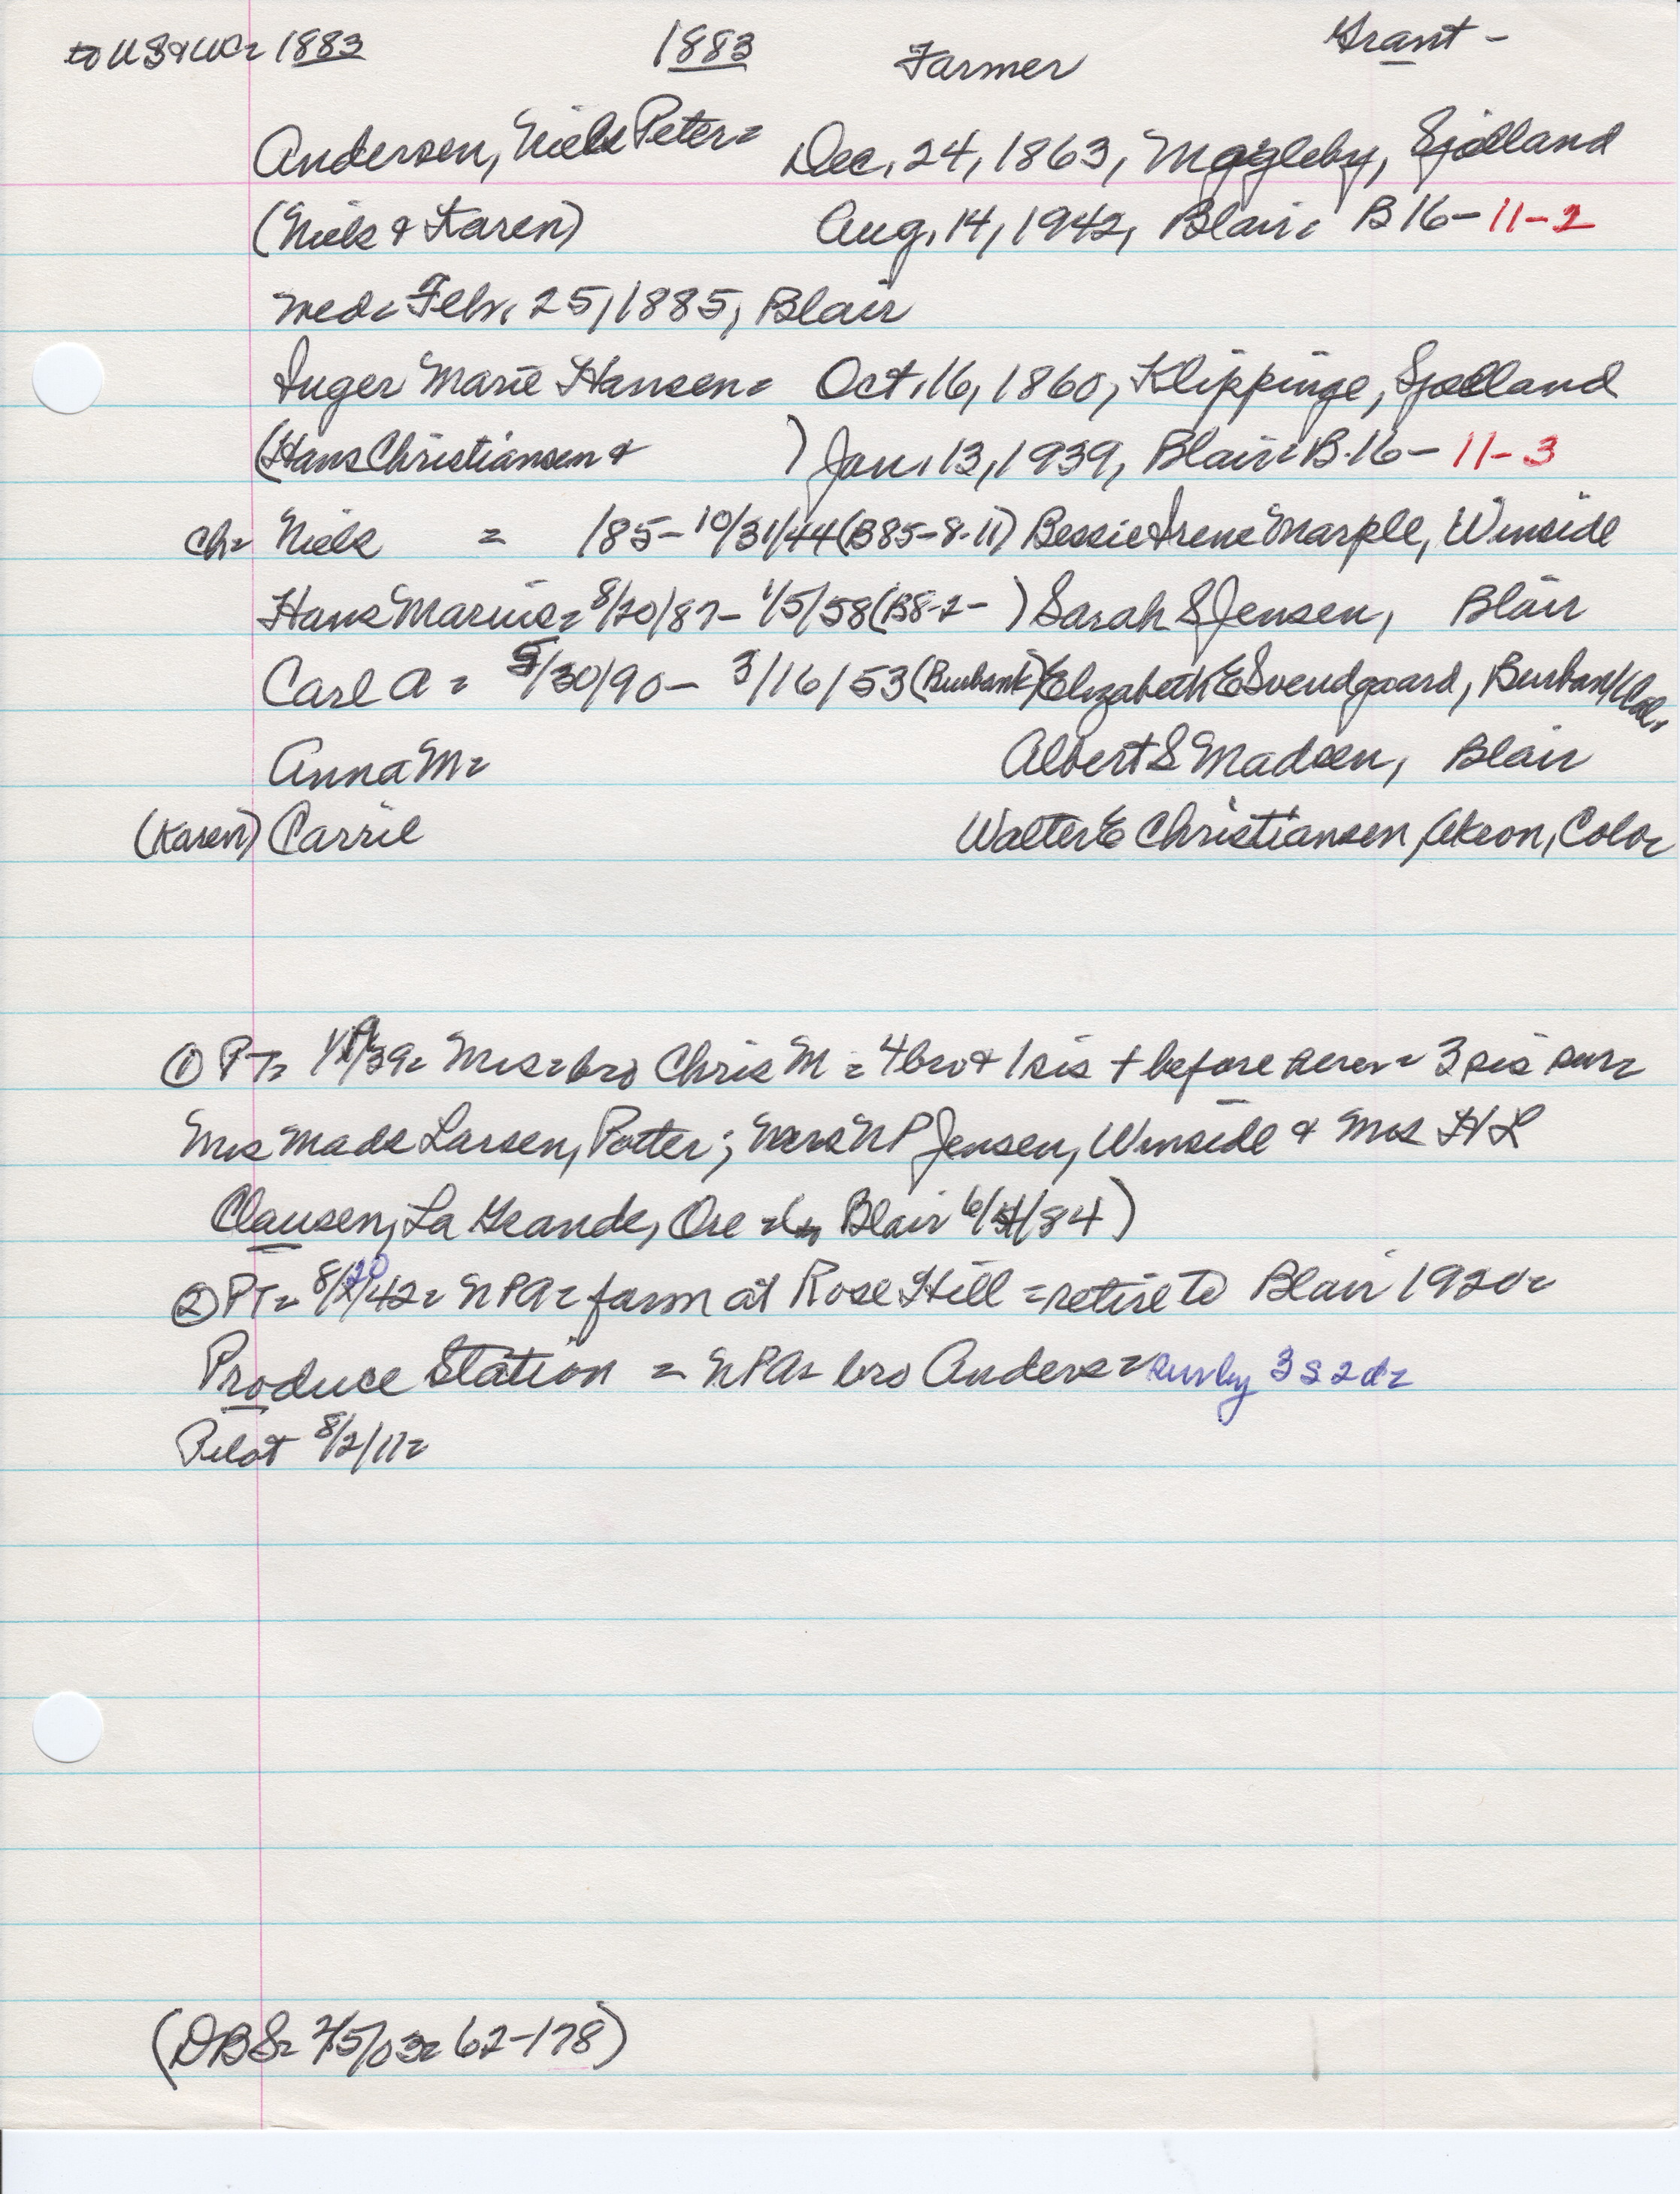 to US & WC= 1883 1883 Farmer Grant -
Andersen, Niels Peter= Dec. 24, 1863, Magleby, Sjælland
(Niels & Karen) Aug. 14, 1942, Blair= B 16- 11-2
med= Febr. 25, 1885, Blair
Inger Marie Hansen= Oct. 16, 1860, Klippinge, Sjælland
(Hans Christiansen & ) Jan. 13, 1939, Blair= B.16- 11-3
Ch= Niels = /85- 10/31/44 (B85-8-11) Bessie Irene Marple, Winside
Hans Marius= 8/20/87- 1/5/58 (B8-2- ) Sarah S Jensen, Blair
Carl A= 5/30/90- 3/16/53 (Burbank) Elizabeth E Svendgaard, Burbank, Cal.
Anna M= Albert S Madsen, Blair
(Karen) Carrie Walter E Christiansen, Akron, Colo=
① PT= /39= Mrs= bro Chris M= 4 bro & 1 sis + before = 3 sis sur=
Mrs Mads Larsen, Potter; Mrs N P Jensen, Winside & Mrs H L
Clausen, La Grande, Ore Blair 6/ /84)
② PT= 8/20/42= NPA= farm at Rose Hill = retire to Blair 1920=
Produce Station = NPA= bro Anders= sur by 3 s 2 d=
Pilot 8/2/11=
(DBS= 2/5/03= 62-178)